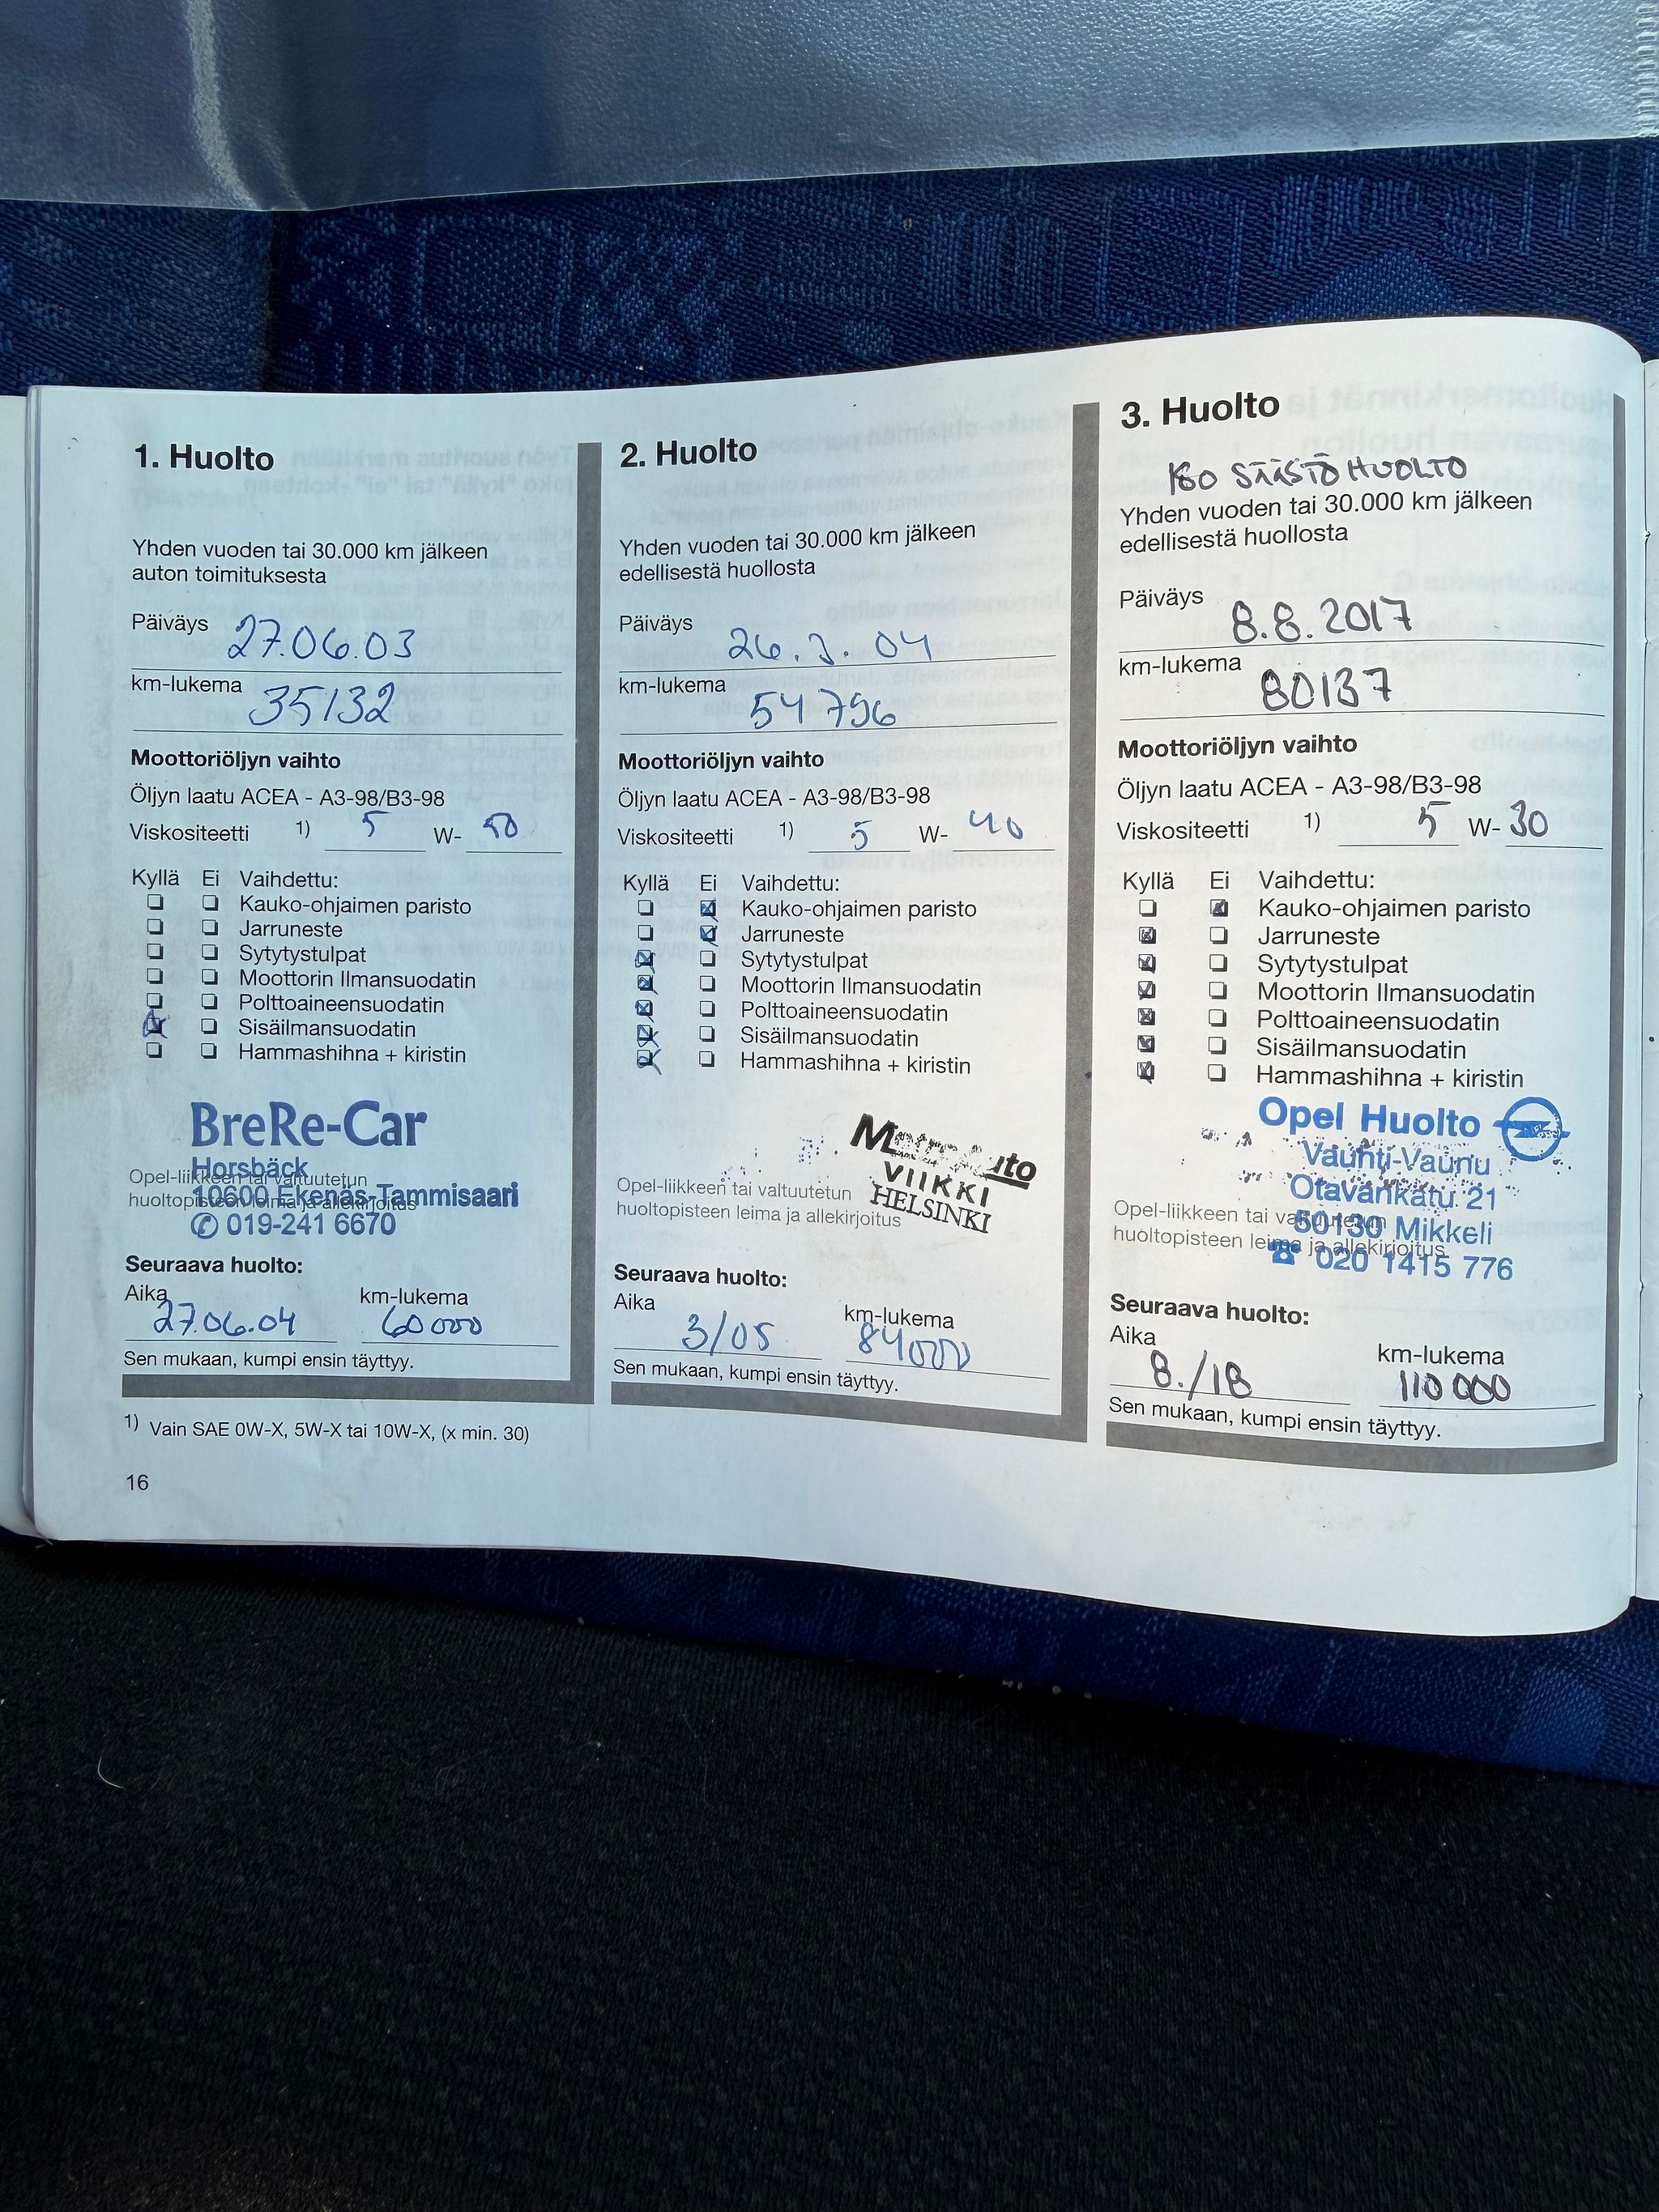 1. Huolto
Yhden vuoden tai 30.000 km jälkeen
auton toimituksesta
Päiväys 27.06.03
km-lukema 35132
Moottoriöljyn vaihto
Öljyn laatu ACEA - A3-98/B3-98
Viskositeetti 1) 5 W- 50
Kyllä Ei Vaihdettu:
Kauko-ohjaimen paristo
Jarruneste
Sytytystulpat
Moottorin Ilmansuodatin
Polttoaineensuodatin
Sisäilmansuodatin
Hammashihna + kiristin
BreRe-Car
Horsbäck
10600 Ekenäs-Tammisaari
019-241 6670
Opel-liikkeen tai valtuutetun
huoltopisteen leima ja allekirjoitus
Seuraava huolto:
Aika km-lukema
27.06.04 60000
Sen mukaan, kumpi ensin täyttyy.
1) Vain SAE 0W-X, 5W-X tai 10W-X, (x min. 30)
16
2. Huolto
Yhden vuoden tai 30.000 km jälkeen
edellisestä huollosta
Päiväys 26.3.04
km-lukema 54796
Moottoriöljyn vaihto
Öljyn laatu ACEA - A3-98/B3-98
Viskositeetti 1) 5 W- 40
Kyllä Ei Vaihdettu:
Kauko-ohjaimen paristo
Jarruneste
Sytytystulpat
Moottorin Ilmansuodatin
Polttoaineensuodatin
Sisäilmansuodatin
Hammashihna + kiristin
VIIKKI
HELSINKI
Opel-liikkeen tai valtuutetun
huoltopisteen leima ja allekirjoitus
Seuraava huolto:
Aika km-lukema
3/05 84000
Sen mukaan, kumpi ensin täyttyy.
3. Huolto
ISO SÄÄSTÖHUOLTO
Yhden vuoden tai 30.000 km jälkeen
edellisestä huollosta
Päiväys 8.8.2017
km-lukema 80137
Moottoriöljyn vaihto
Öljyn laatu ACEA - A3-98/B3-98
Viskositeetti 1) 5 W- 30
Kyllä Ei Vaihdettu:
Kauko-ohjaimen paristo
Jarruneste
Sytytystulpat
Moottorin Ilmansuodatin
Polttoaineensuodatin
Sisäilmansuodatin
Hammashihna + kiristin
Opel Huolto
Vauhti-Vaunu
Otavankatu 21
50130 Mikkeli
020 1415 776
Opel-liikkeen tai valtuutetun
huoltopisteen leima ja allekirjoitus
Seuraava huolto:
Aika km-lukema
8./18 110000
Sen mukaan, kumpi ensin täyttyy.